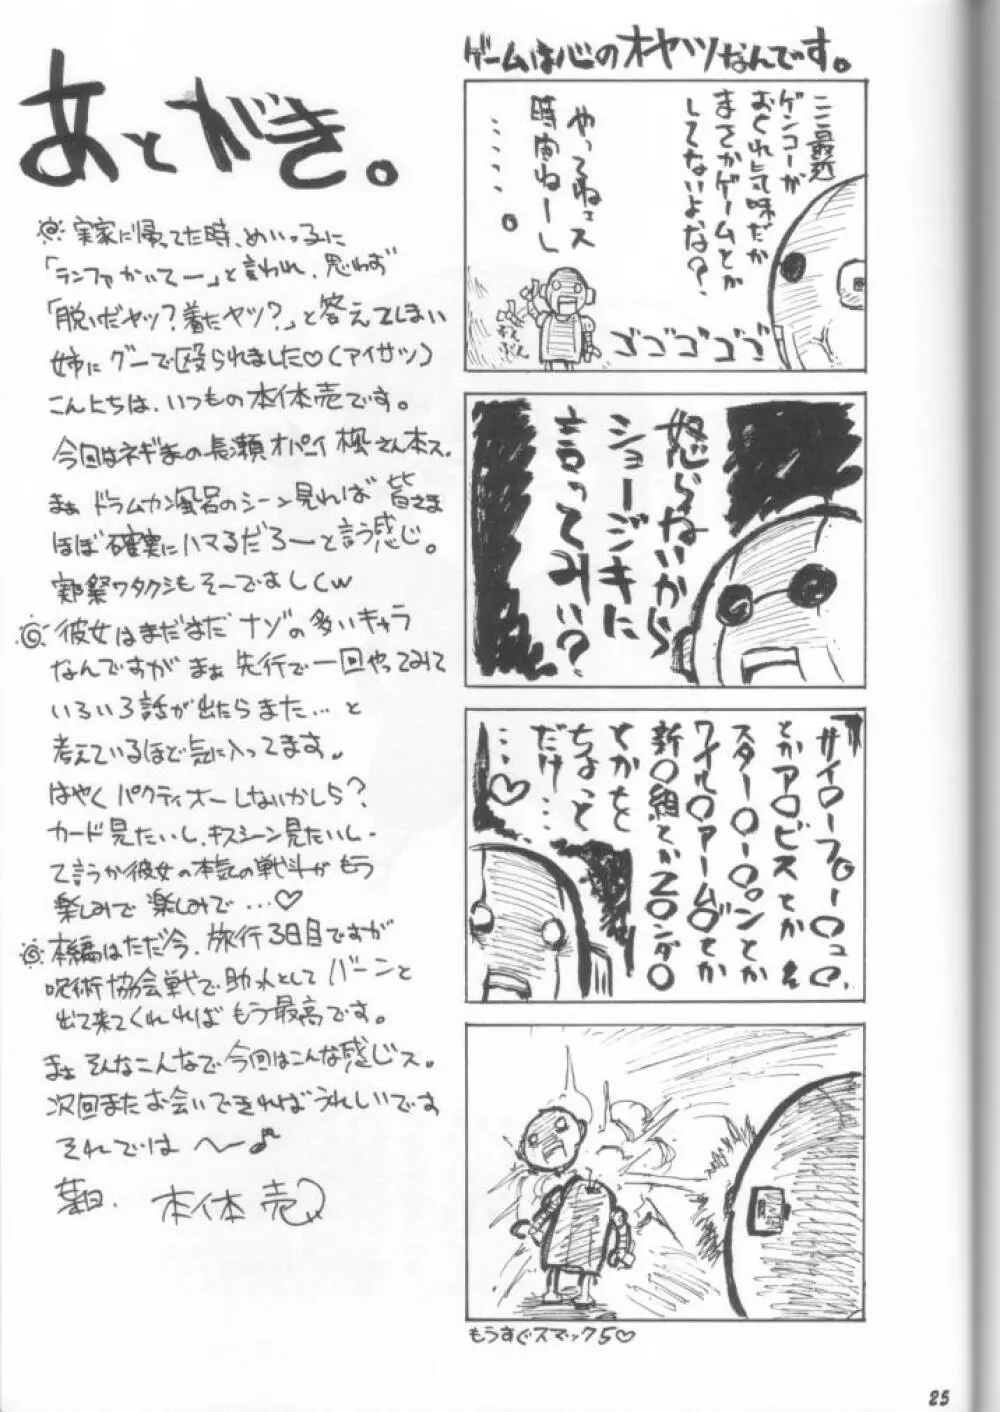 あとがき。
実家に帰ってた時、めいっ子に
「ランファかいてー」と言われ、思わず
「脱いだヤツ?着たヤツ?」と答えてしまい
姉にグーで殴られました♡(アイサツ)
こんにちは、いつもの本体売です。
今回はネギまの長瀬オパーイ楓さん本ス。
まぁドラムカン風呂のシーン見れば皆さま
ほぼ確実にハマるだろーと言う感じ。
実際ワタクシもそーでましてw
彼女はまだまだナゾの多いキャラ
なんですがまぁ先行で一回やってみて
いろいろ話が出たらまた…と
考えているほど気に入ってます。
はやくパクティオーしないかしら?
カード見たいし、キスシーン見たいし・
て言うか彼女の本気の戦斗がもう
楽しみで楽しみで…♡
本編はただ今、旅行3日目ですが
呪術協会戦で助けとしてバーンと
出て来てくれればもう最高です。
まぁそんなこんなで今回はこんな感じス。
次回またお会いできればうれしいです
それでは〜♪
本体売
ゲームは心のオヤツなんです。
ここ最近
ゲンコーが
おくれ気味だが
まさかゲームとか
してないよな?
やってねェス
時間ねーし
・・・・・。
ゴゴゴゴゴ
怒らねいから
ショージキに
言ってみい?
サイ〇ーフォー〇ュ〇、
とかア〇ビスとか
スター〇ー〇ンとか
ワイル〇アーム〇とか
新〇組とかZ〇ンダ〇
とかをちょっと
だけ…
…♡
脳
もうすぐスマック5♡
25